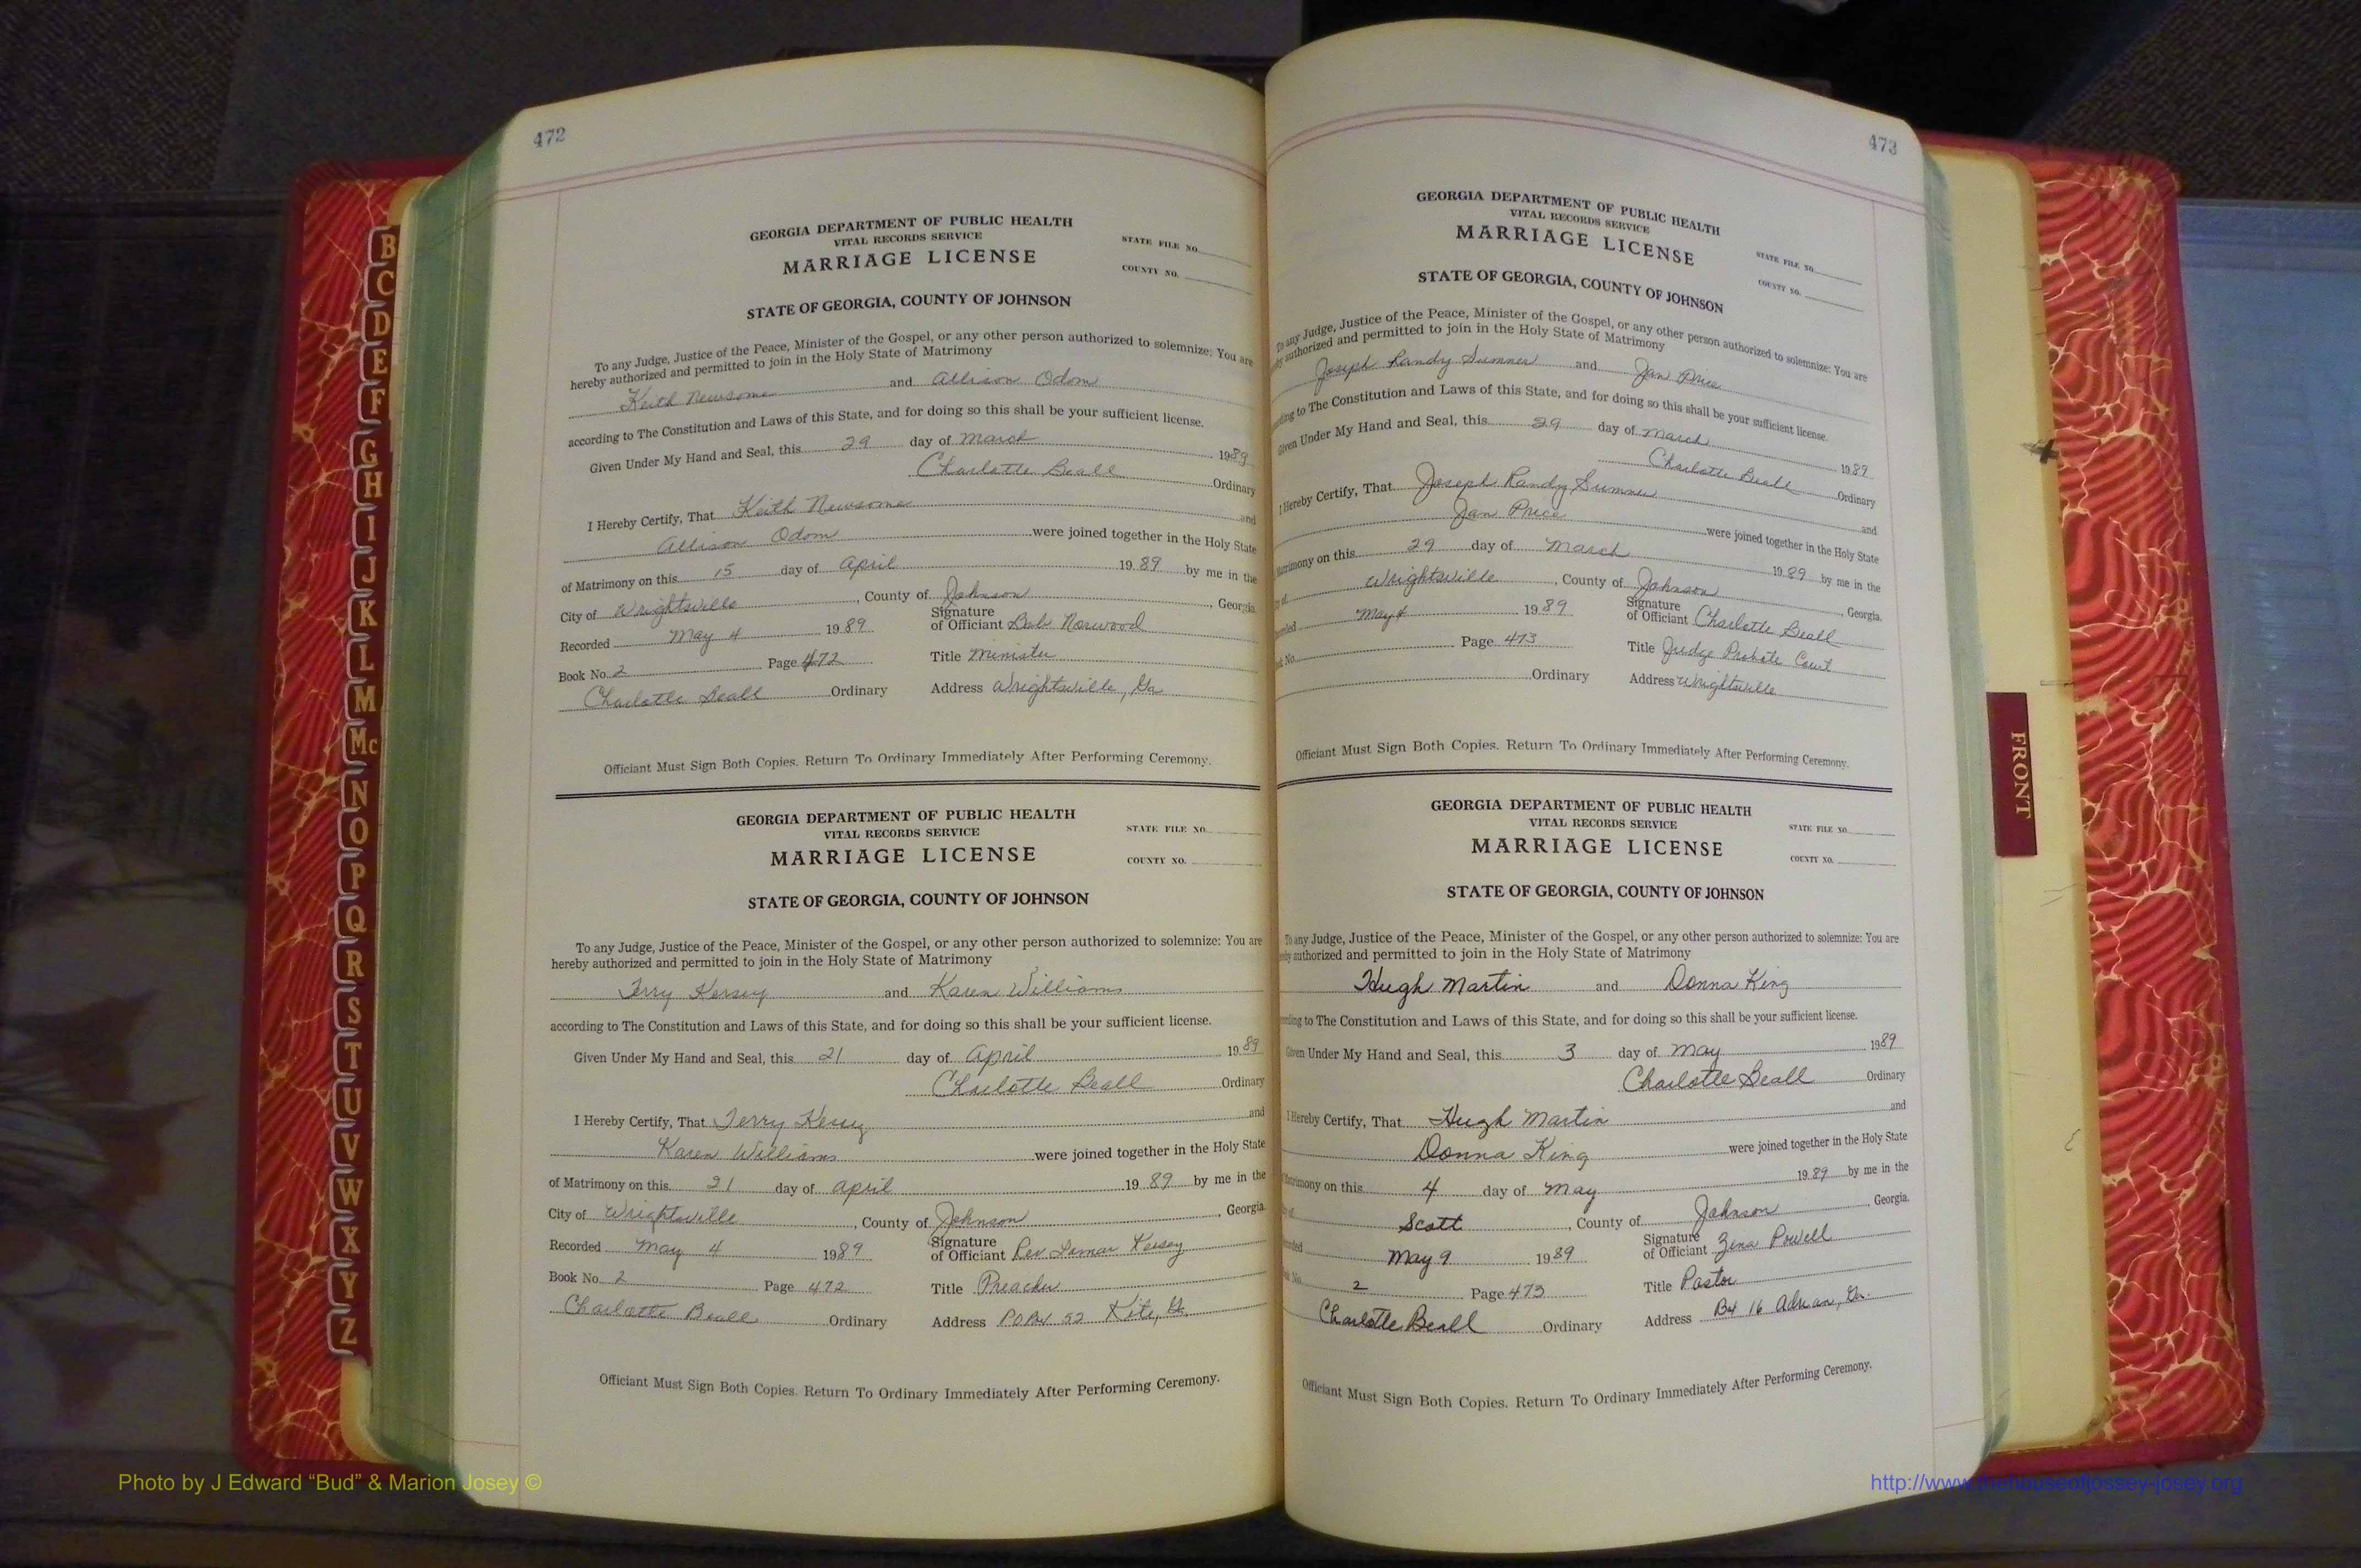 472
GEORGIA DEPARTMENT OF PUBLIC HEALTH
VITAL RECORDS SERVICE
MARRIAGE LICENSE
STATE FILE NO.
COUNTY NO.
STATE OF GEORGIA, COUNTY OF JOHNSON
To any Judge, Justice of the Peace, Minister of the Gospel, or any other person authorized to solemnize: You are
hereby authorized and permitted to join in the Holy State of Matrimony
Keith Newsome and Allison Odom
according to The Constitution and Laws of this State, and for doing so this shall be your sufficient license.
Given Under My Hand and Seal, this 29 day of March 1989
Charlotte Beall Ordinary
I Hereby Certify, That Keith Newsome and
Allison Odom were joined together in the Holy State
of Matrimony on this 15 day of April 1989 by me in the
City of Wrightsville, County of Johnson, Georgia
Recorded May 4 1989 Signature of Officiant Bob Norwood
Book No. 2 Page 472 Title Minister
Charlotte Beall Ordinary Address Wrightsville, Ga
Officiant Must Sign Both Copies. Return To Ordinary Immediately After Performing Ceremony.
GEORGIA DEPARTMENT OF PUBLIC HEALTH
VITAL RECORDS SERVICE
MARRIAGE LICENSE
STATE FILE NO.
COUNTY NO.
STATE OF GEORGIA, COUNTY OF JOHNSON
To any Judge, Justice of the Peace, Minister of the Gospel, or any other person authorized to solemnize: You are
hereby authorized and permitted to join in the Holy State of Matrimony
Terry Kersey and Karen Williams
according to The Constitution and Laws of this State, and for doing so this shall be your sufficient license.
Given Under My Hand and Seal, this 21 day of April 1989
Charlotte Beall Ordinary
I Hereby Certify, That Terry Kersey and
Karen Williams were joined together in the Holy State
of Matrimony on this 21 day of April 1989 by me in the
City of Wrightsville, County of Johnson, Georgia
Recorded May 4 1989 Signature of Officiant Rev Lamar Kersey
Book No. 2 Page 472 Title Preacher
Charlotte Beall Ordinary Address PO Bx 52 Kite, Ga
Officiant Must Sign Both Copies. Return To Ordinary Immediately After Performing Ceremony.
473
GEORGIA DEPARTMENT OF PUBLIC HEALTH
VITAL RECORDS SERVICE
MARRIAGE LICENSE
STATE FILE NO.
COUNTY NO.
STATE OF GEORGIA, COUNTY OF JOHNSON
To any Judge, Justice of the Peace, Minister of the Gospel, or any other person authorized to solemnize: You are
authorized and permitted to join in the Holy State of Matrimony
Joseph Randy Sumner and Jan Price
to The Constitution and Laws of this State, and for doing so this shall be your sufficient license.
Given Under My Hand and Seal, this 29 day of March 1989
Charlotte Beall Ordinary
I Hereby Certify, That Joseph Randy Sumner and
Jan Price were joined together in the Holy State
on this 29 day of March 1989 by me in the
Wrightsville, County of Johnson, Georgia.
May 4 1989 Signature of Officiant Charlotte Beall
No. Page 473 Title Judge Probate Court
Ordinary Address Wrightsville
Officiant Must Sign Both Copies. Return To Ordinary Immediately After Performing Ceremony.
GEORGIA DEPARTMENT OF PUBLIC HEALTH
VITAL RECORDS SERVICE
MARRIAGE LICENSE
STATE FILE NO.
COUNTY NO.
STATE OF GEORGIA, COUNTY OF JOHNSON
To any Judge, Justice of the Peace, Minister of the Gospel, or any other person authorized to solemnize: You are
authorized and permitted to join in the Holy State of Matrimony
Hugh Martin and Donna King
to The Constitution and Laws of this State, and for doing so this shall be your sufficient license.
Given Under My Hand and Seal, this 3 day of May 1989
Charlotte Beall Ordinary
I Hereby Certify, That Hugh Martin and
Donna King were joined together in the Holy State
on this 4 day of May 1989 by me in the
Scott, County of Johnson, Georgia.
May 9 1989 Signature of Officiant Zena Powell
2 Page 473 Title Pastor
Charlotte Beall Ordinary Address Bx 16 Adrian, Ga.
Officiant Must Sign Both Copies. Return To Ordinary Immediately After Performing Ceremony.
B
C
D
E
F
G
H
I
J
K
L
M
Mc
N
O
P
Q
R
S
T
U
V
W
X
Y
Z
FRONT
Photo by J Edward “Bud” & Marion Josey ©
http://www.thehouseofjossey-josey.org